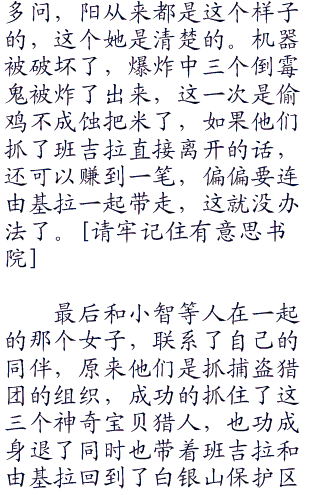 多问，阳从来都是这个样子
的，这个她是清楚的。机器
被破坏了，爆炸中三个倒霉
鬼被炸了出来，这一次是偷
鸡不成蚀把米了，如果他们
抓了班吉拉直接离开的话，
还可以赚到一笔，偏偏要连
由基拉一起带走，这就没办
法了。[请牢记住有意思书
院]
最后和小智等人在一起
的那个女子，联系了自己的
同伴，原来他们是抓捕盗猎
团的组织，成功的抓住了这
三个神奇宝贝猎人，也功成
身退了同时也带着班吉拉和
由基拉回到了白银山保护区